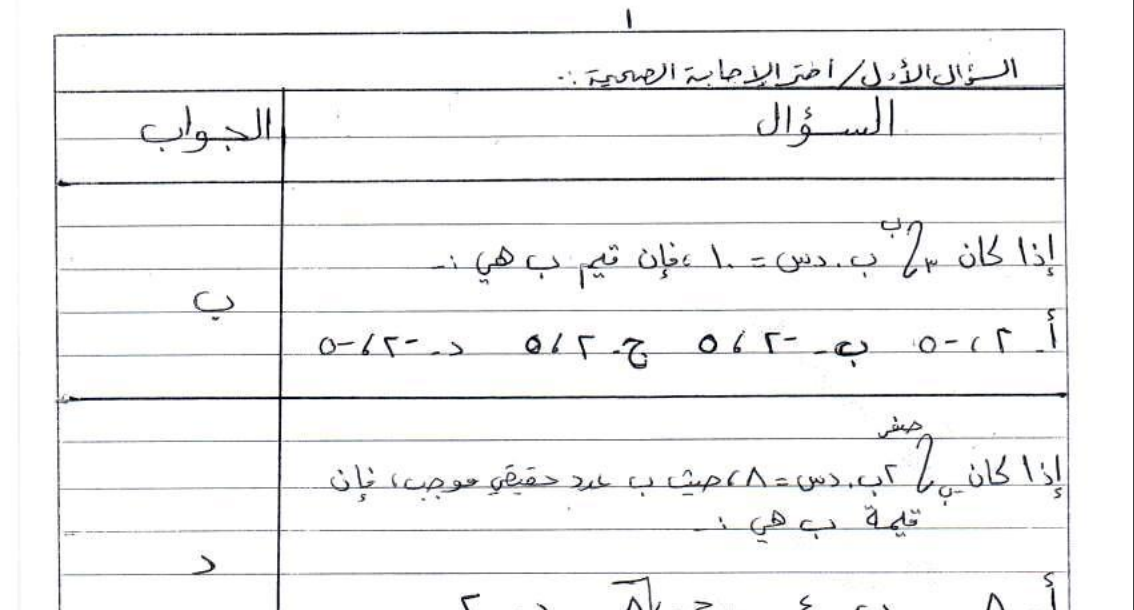 ١
السؤال الأول/ اختر الإجابة الصحيحة :-
السؤال الجواب
إذا كان ∫٣^ب ب.دس = ١٠، فإن قيم ب هي :-
ب
أ- ٢، -٥ ب- -٢، ٥ ج- ٢، ٥ د- -٢، -٥
إذا كان ∫-ب^صفر ٢ب.دس = ٨، حيث ب عدد حقيقي موجب، فإن
قيمة ب هي :-
د
أ- ٨ ب- ٤ ج- √٨ د- ٢